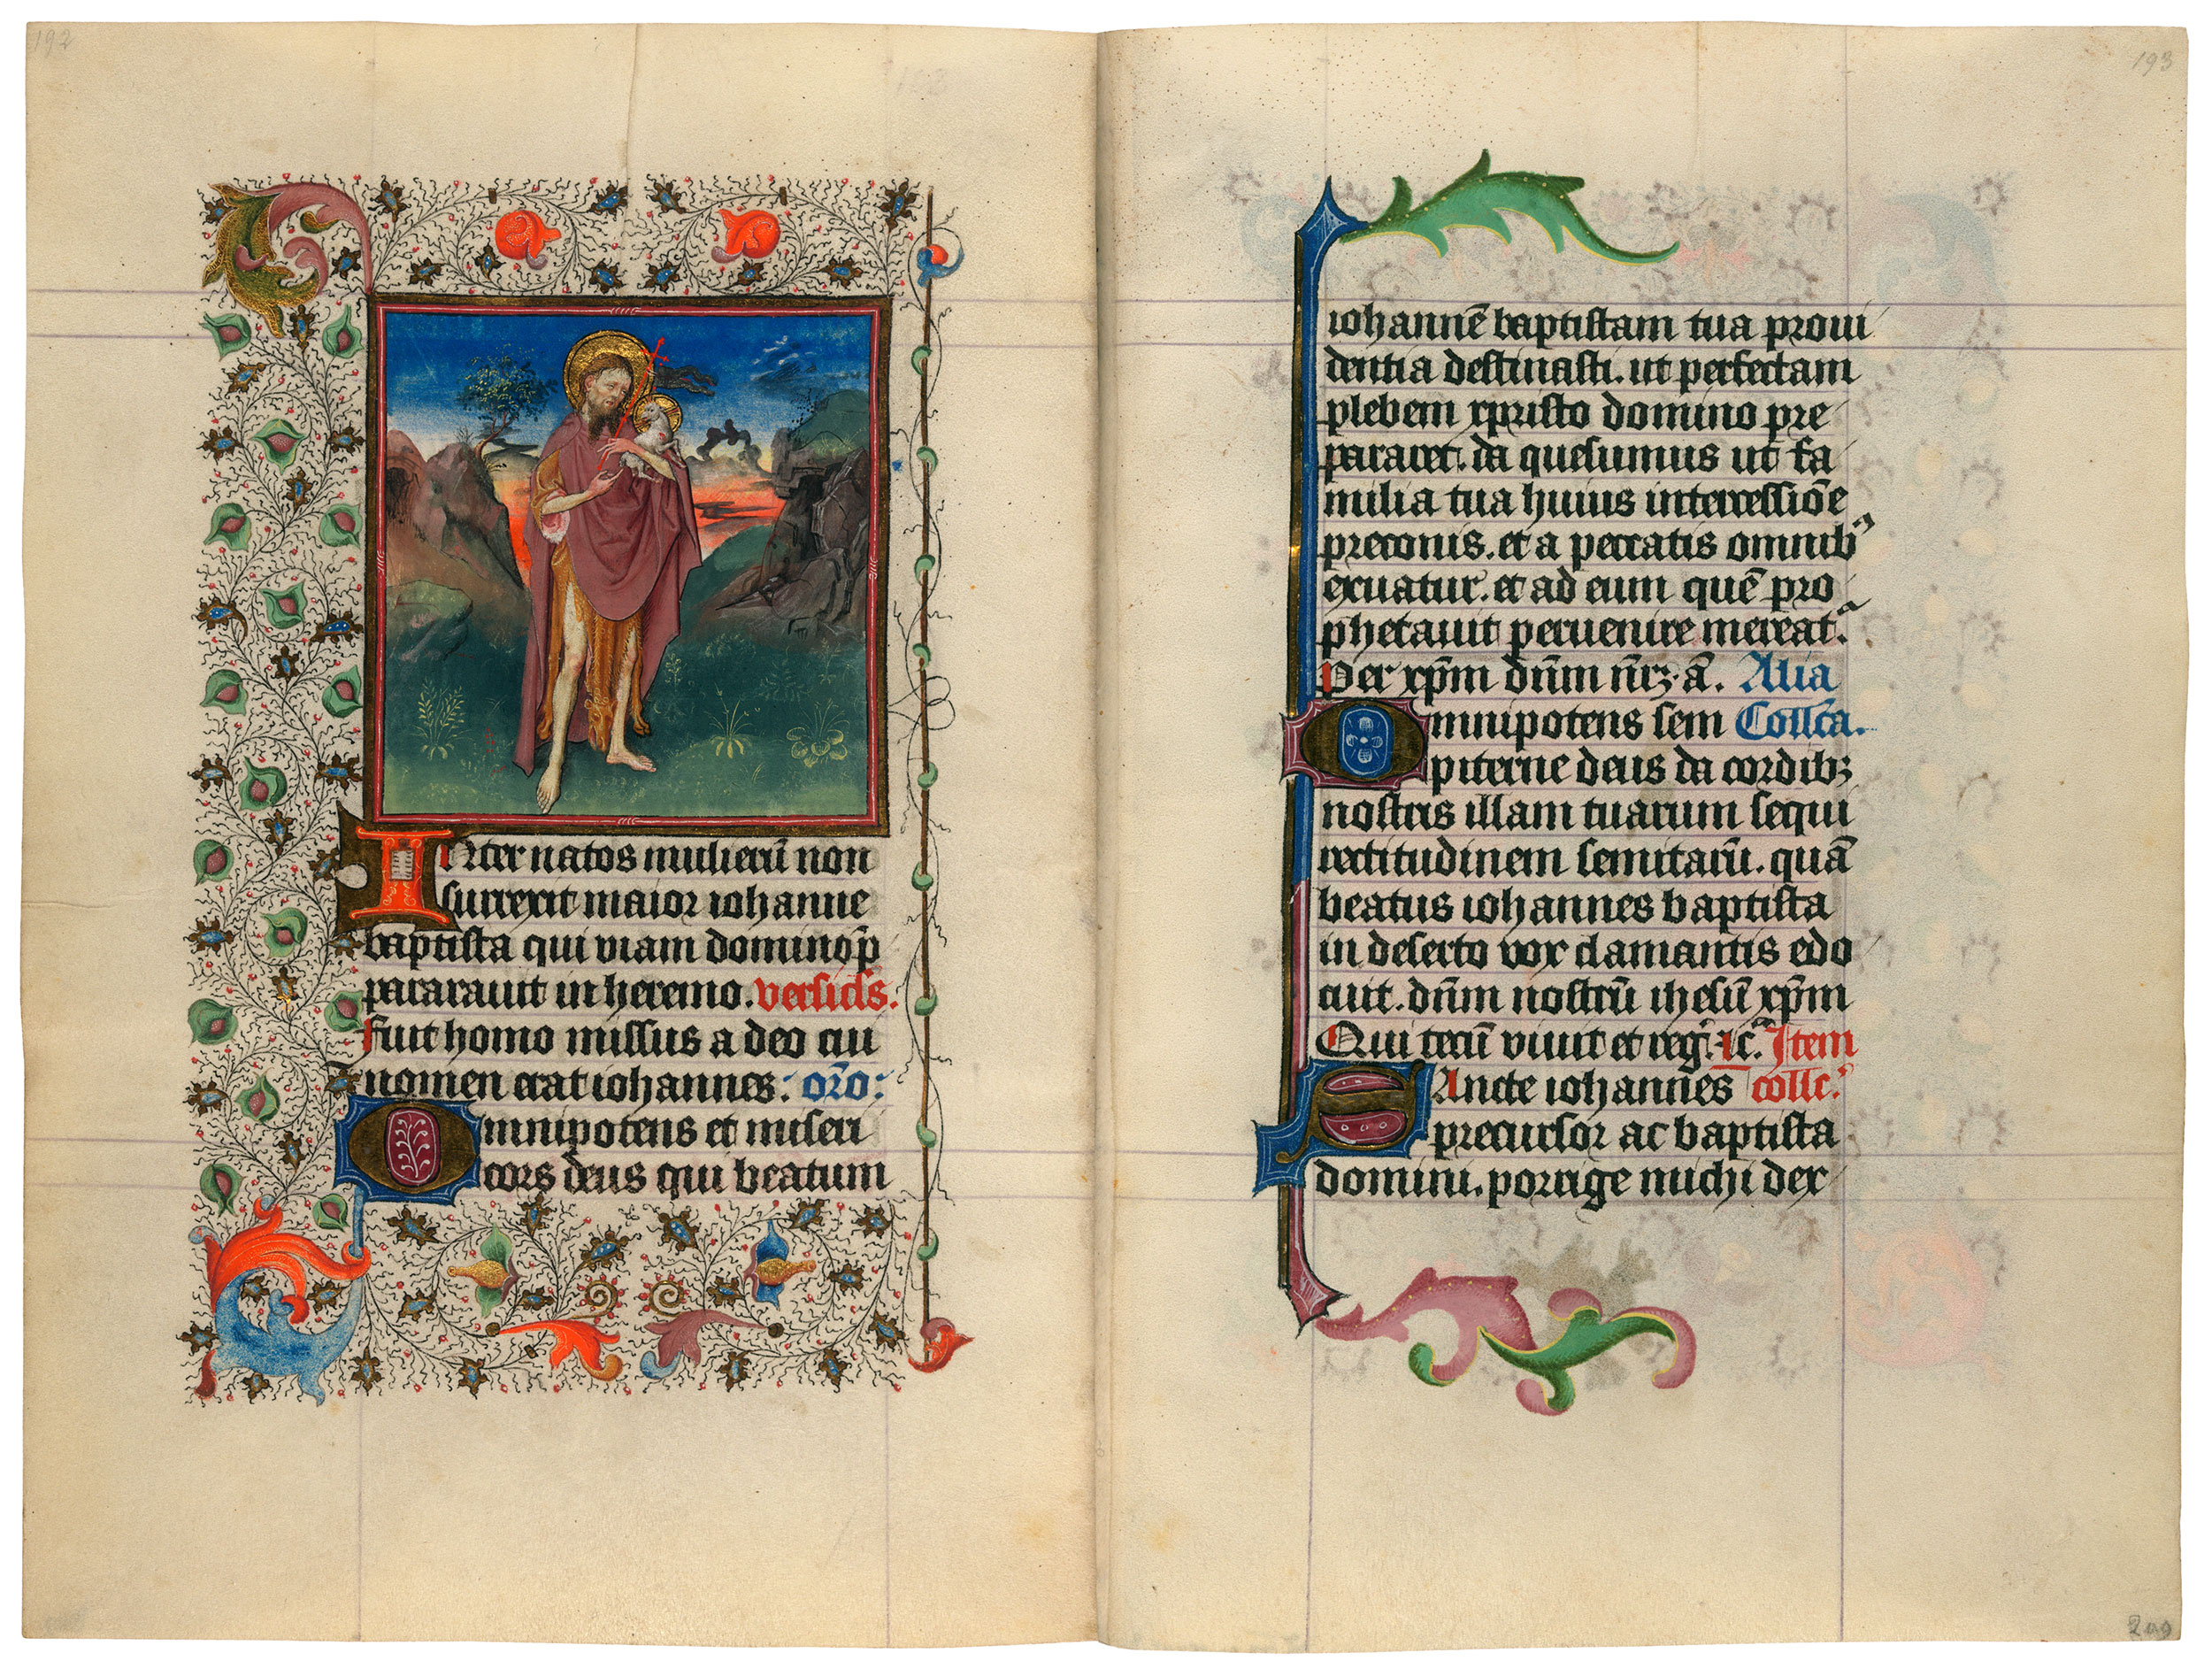 192
Inter natos mulierū non
surrexit maior iohanne
baptista qui viam domino p̄
pararauit in heremo. versicls.
Fuit homo missus a deo cui
nomen erat iohannes: or̄o:
Omnipotens et miseri
cors deus qui beatum
193
iohannē baptistam tua proui
dentia destinasti. ut perfectam
plebem xpristo domino pre
pararet. da quesumus ut fa
milia tua huius intercessiōe
preconis. et a peccatis omnib⁹
exuatur. et ad eum quē pro
phetauit peruenire mereat᷑.
Per xp̄m dn̄m nr̄ꝫ. ā. Alia
Omnipotens sem Coll̄ca.
piterne deus da cordibꝫ
nostris illam tuarum sequi
rectitudinem semitarū. quā
beatus iohannes baptista
in deserto vox clamantis edo
cuit. dn̄m nostrū ihesū xp̄m
Qui tecū viuit et reg᷑. ꝛc̄. Item
SAncte iohannes collc᷑.
precursor ac baptista
domini. porrige michi dex
209